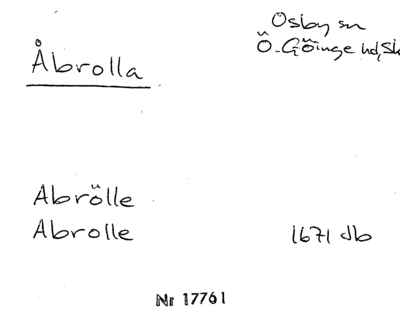 Osby sn
Åbrolla
Ö-Göinge hd, Sk
Abrölle
Abrolle 1671 Jb
Nr 17761